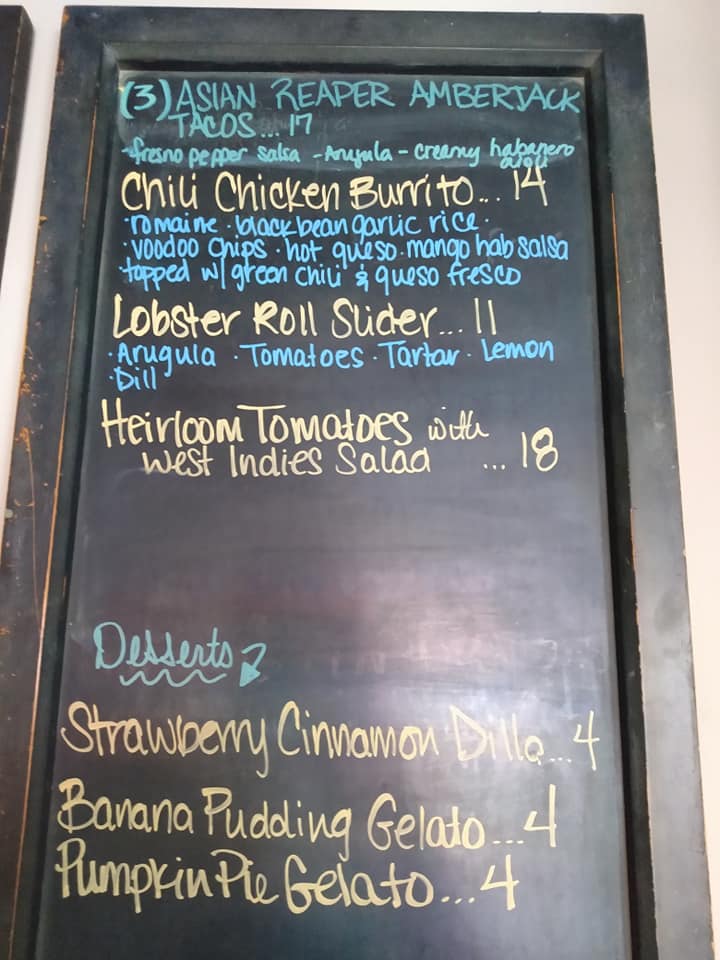 (3) ASIAN REAPER AMBERJACK
TACOS... 17
-fresno pepper salsa - Arugula - creamy habanero
aioli
Chili Chicken Burrito... 14
·romaine ·black bean garlic rice·
·voodoo chips · hot queso · mango hab salsa
·topped w/ green chili & queso fresco
Lobster Roll Slider... 11
·Arugula ·Tomatoes · Tartar · Lemon
·Dill
Heirloom Tomatoes with
West Indies Salad ... 18
Desserts
Strawberry Cinnamon Dilla... 4
Banana Pudding Gelato... 4
Pumpkin Pie Gelato... 4